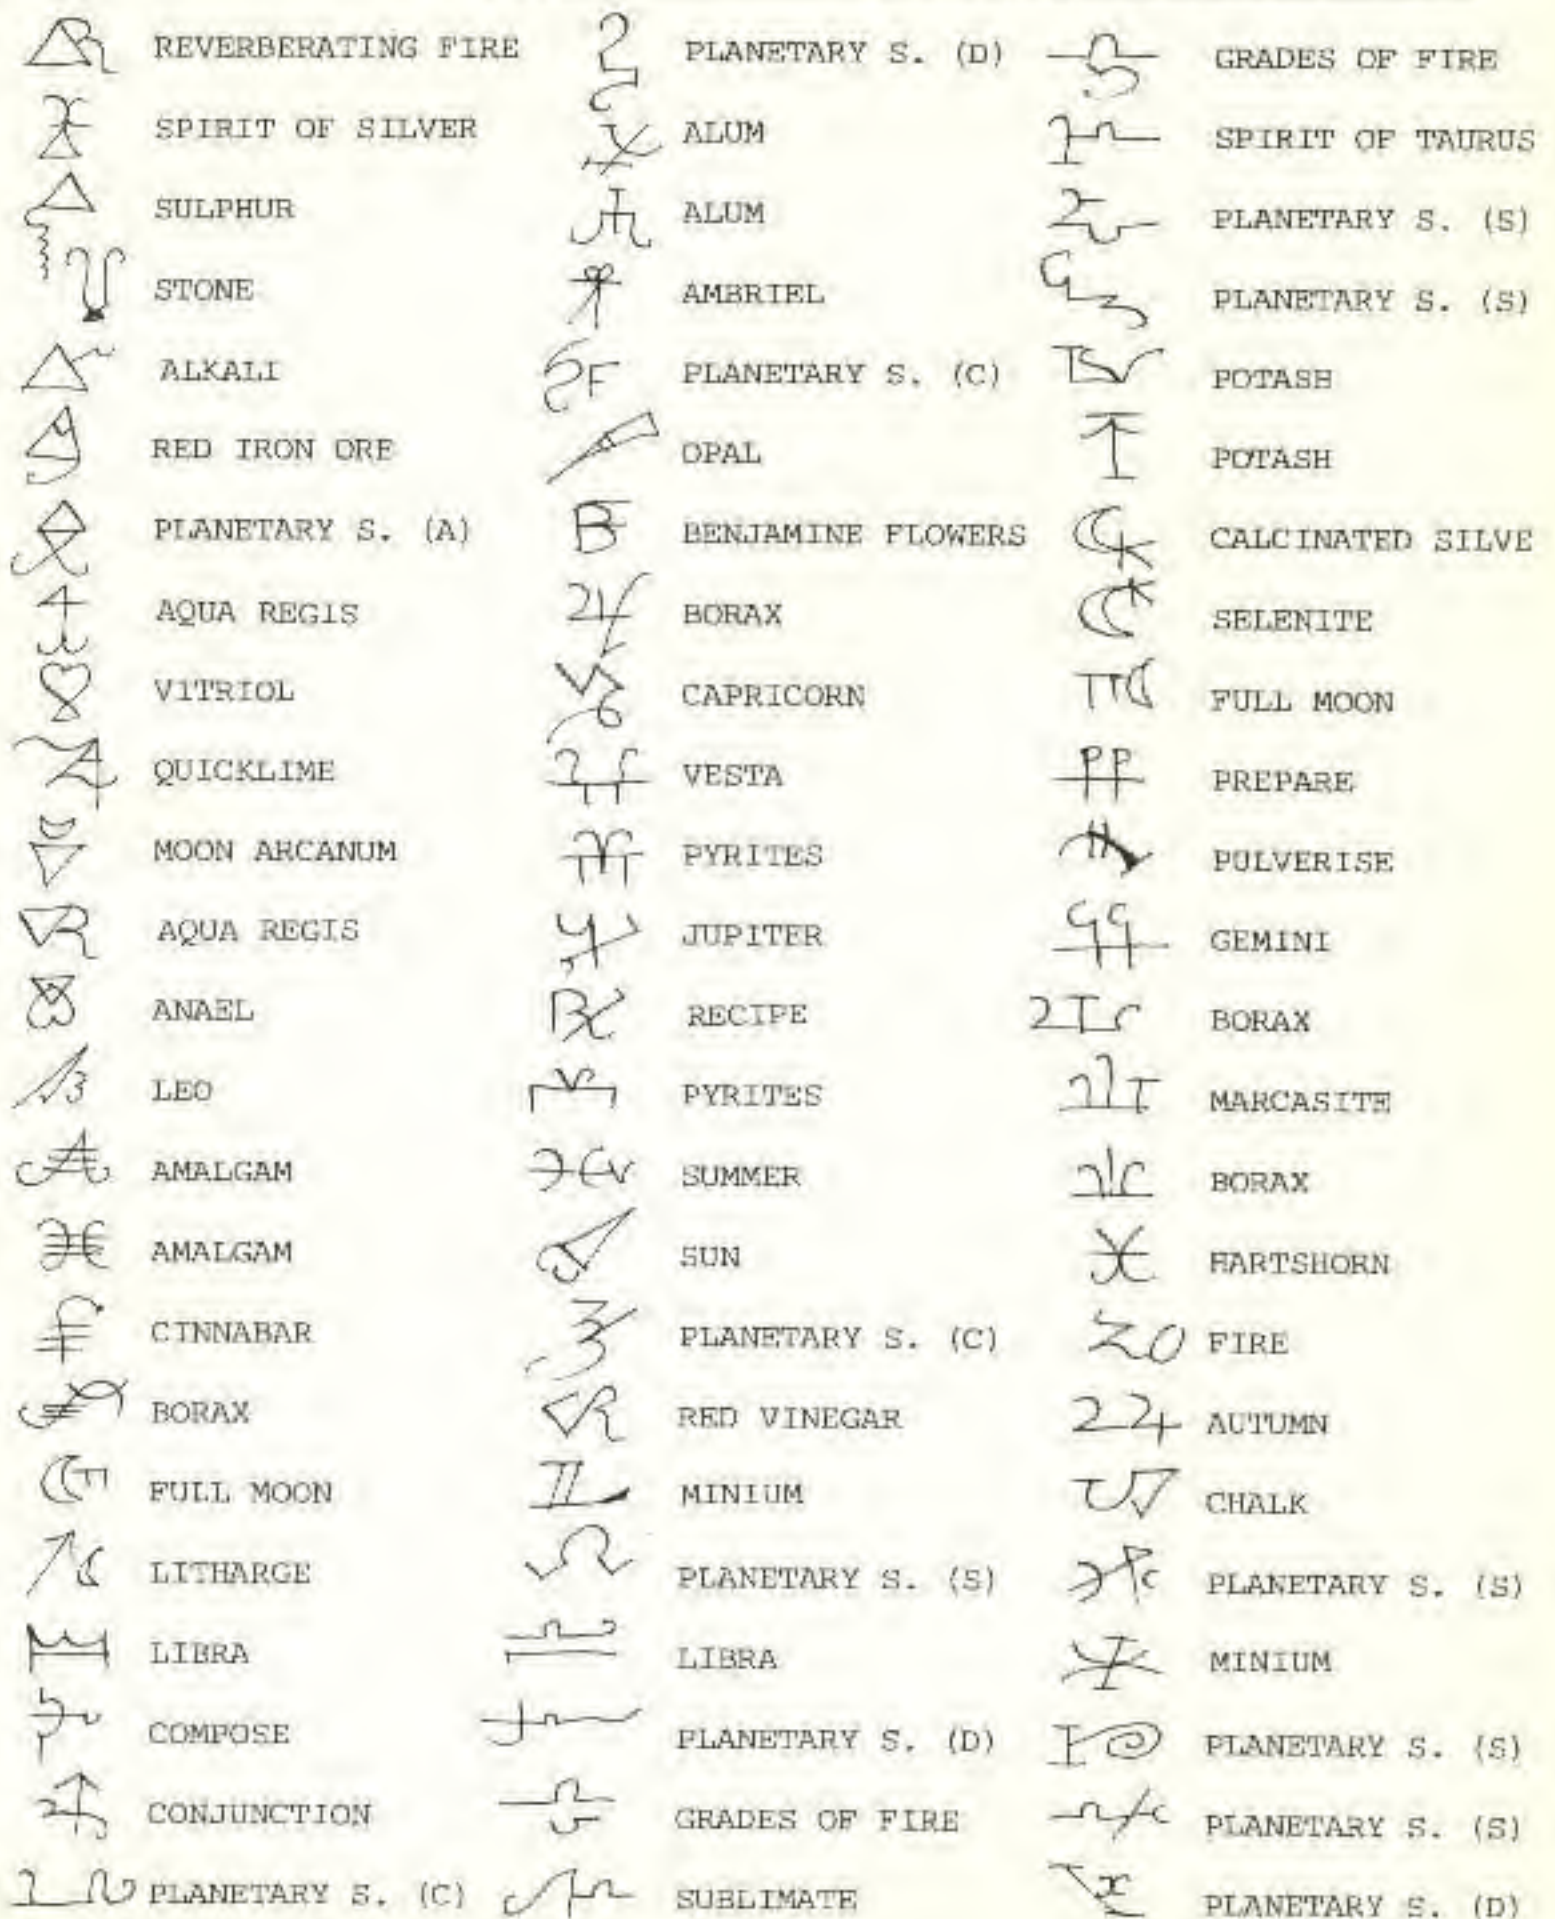 REVERBERATING FIRE
SPIRIT OF SILVER
SULPHUR
STONE
ALKALI
RED IRON ORE
PLANETARY S. (A)
AQUA REGIS
VITRIOL
QUICKLIME
MOON ARCANUM
AQUA REGIS
ANAEL
LEO
AMALGAM
AMALGAM
CINNABAR
BORAX
FULL MOON
LITHARGE
LIBRA
COMPOSE
CONJUNCTION
PLANETARY S. (C)
PLANETARY S. (D)
ALUM
ALUM
AMBRIEL
PLANETARY S. (C)
OPAL
BENJAMINE FLOWERS
BORAX
CAPRICORN
VESTA
PYRITES
JUPITER
RECIPE
PYRITES
SUMMER
SUN
PLANETARY S. (C)
RED VINEGAR
MINIUM
PLANETARY S. (S)
LIBRA
PLANETARY S. (D)
GRADES OF FIRE
SUBLIMATE
GRADES OF FIRE
SPIRIT OF TAURUS
PLANETARY S. (S)
PLANETARY S. (S)
POTASH
POTASH
CALCINATED SILVE
SELENITE
FULL MOON
PREPARE
PULVERISE
GEMINI
BORAX
MARCASITE
BORAX
HARTSHORN
FIRE
AUTUMN
CHALK
PLANETARY S. (S)
MINIUM
PLANETARY S. (S)
PLANETARY S. (S)
PLANETARY S. (D)